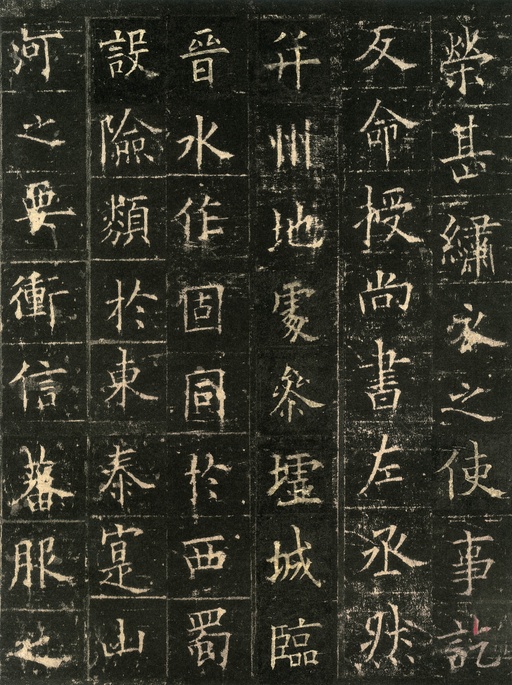 榮甚繡衣之使事訖
反命授尚書左丞然
并州地處參墟城臨
晉水作固同於西蜀
設險類於東秦寔山
河之要衝信蕃服之